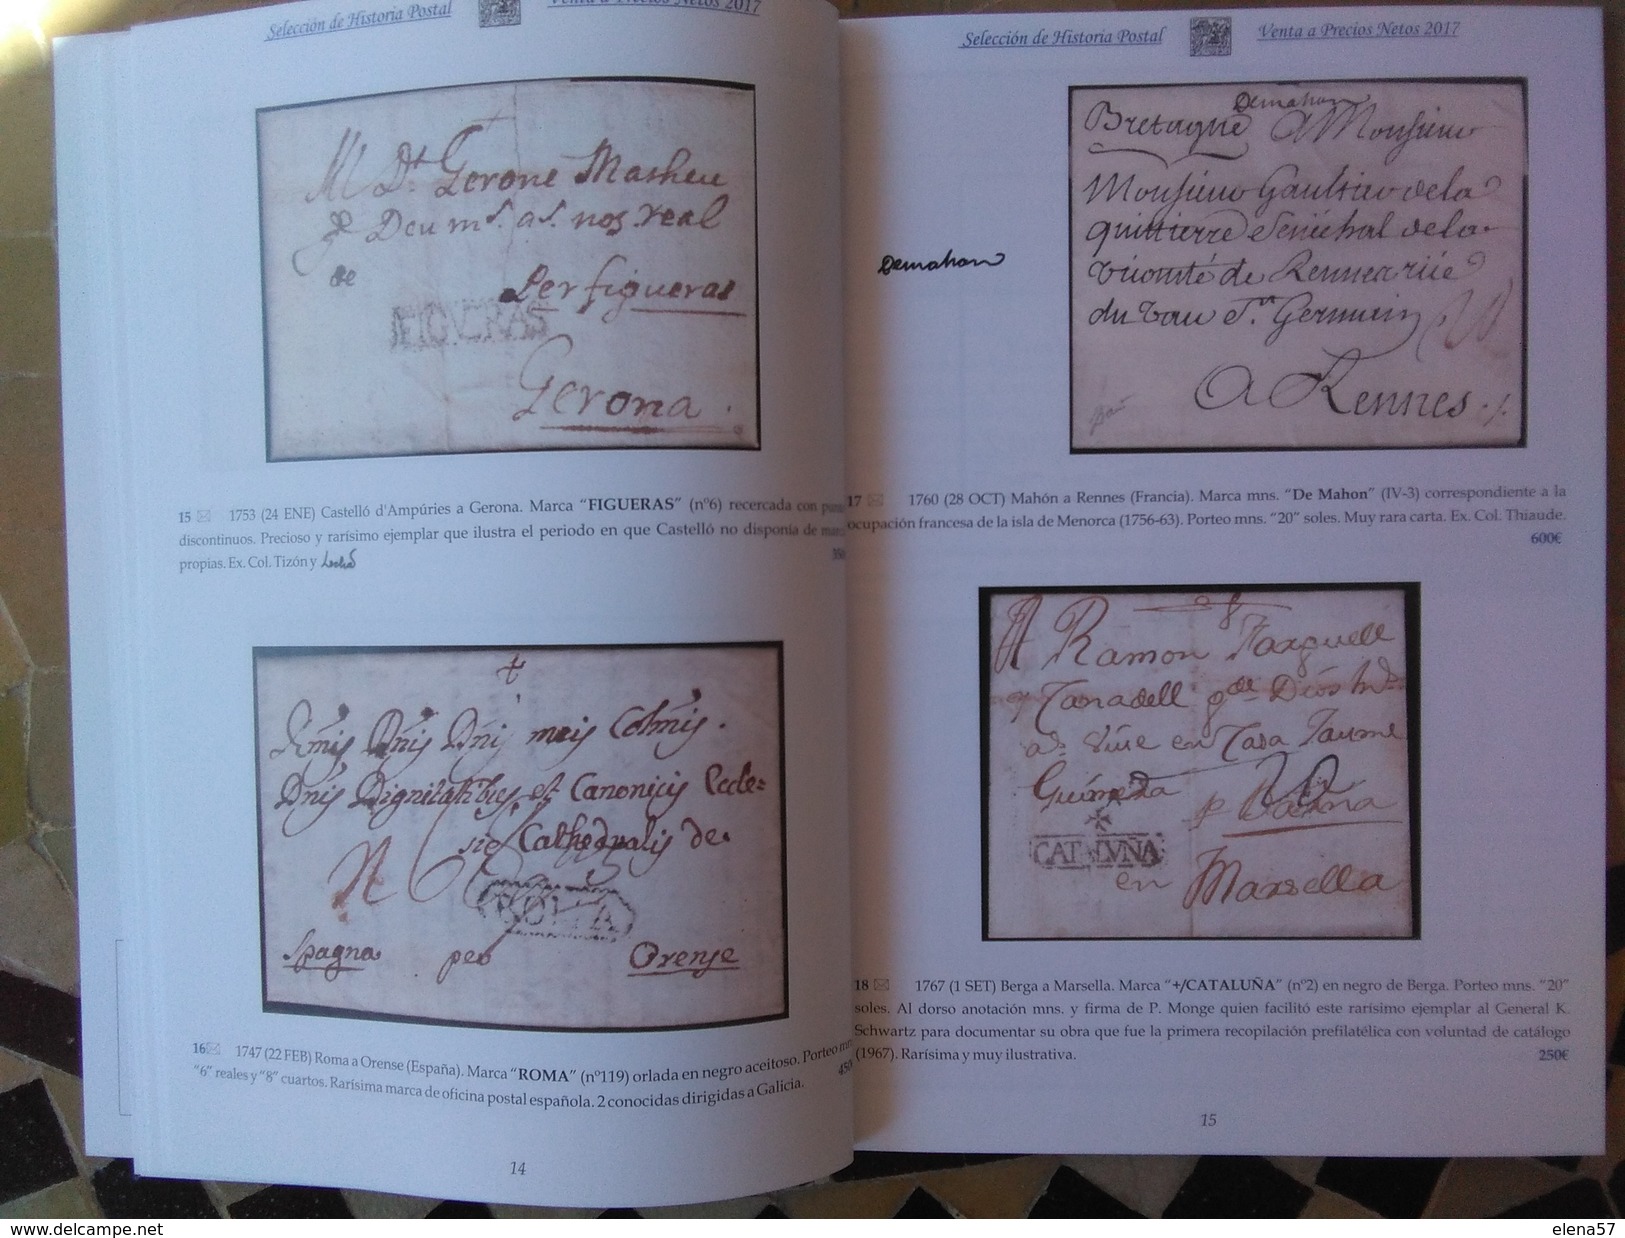 Selección de Historia Postal
Venta a Precios Netos 2017
Gerone Matheu
nos real
de
Per figueras
FIGUERAS
Gerona
15 1753 (24 ENE) Castelló d'Ampúries a Gerona. Marca "FIGUERAS" (nº6) recercada con
discontinuos. Precioso y rarísimo ejemplar que ilustra el periodo en que Castelló no disponía de
propias. Ex. Col. Tizón y
Dignitatibus et Canonicis Eccle=
sie Cathedralis de
ROMA
Spagna per Orense
16 1747 (22 FEB) Roma a Orense (España). Marca "ROMA" (nº119) orlada en negro aceitoso. Porteo mn
"6" reales y "8" cuartos. Rarísima marca de oficina postal española. 2 conocidas dirigidas a Galicia.
14
Selección de Historia Postal
Venta a Precios Netos 2017
Demahon
Bretagne A Monsieur
Monsieur Gaultier dela
Senechal dela
Vicomté de Rennes rüe
du St. Germain
A Rennes
Demahon
17 1760 (28 OCT) Mahón a Rennes (Francia). Marca mns. "De Mahon" (IV-3) correspondiente a la
ocupación francesa de la isla de Menorca (1756-63). Porteo mns. "20" soles. Muy rara carta. Ex. Col. Thiaude.
600€
A Ramon
Dios
en Casa Jaume
CATALUÑA
en Marsella
18 1767 (1 SET) Berga a Marsella. Marca "+/CATALUÑA" (nº2) en negro de Berga. Porteo mns. "20"
soles. Al dorso anotación mns. y firma de P. Monge quien facilitó este rarísimo ejemplar al General K.
Schwartz para documentar su obra que fue la primera recopilación prefilatélica con voluntad de catálogo
(1967). Rarísima y muy ilustrativa.
250€
15
www.delcampe.net
elena57